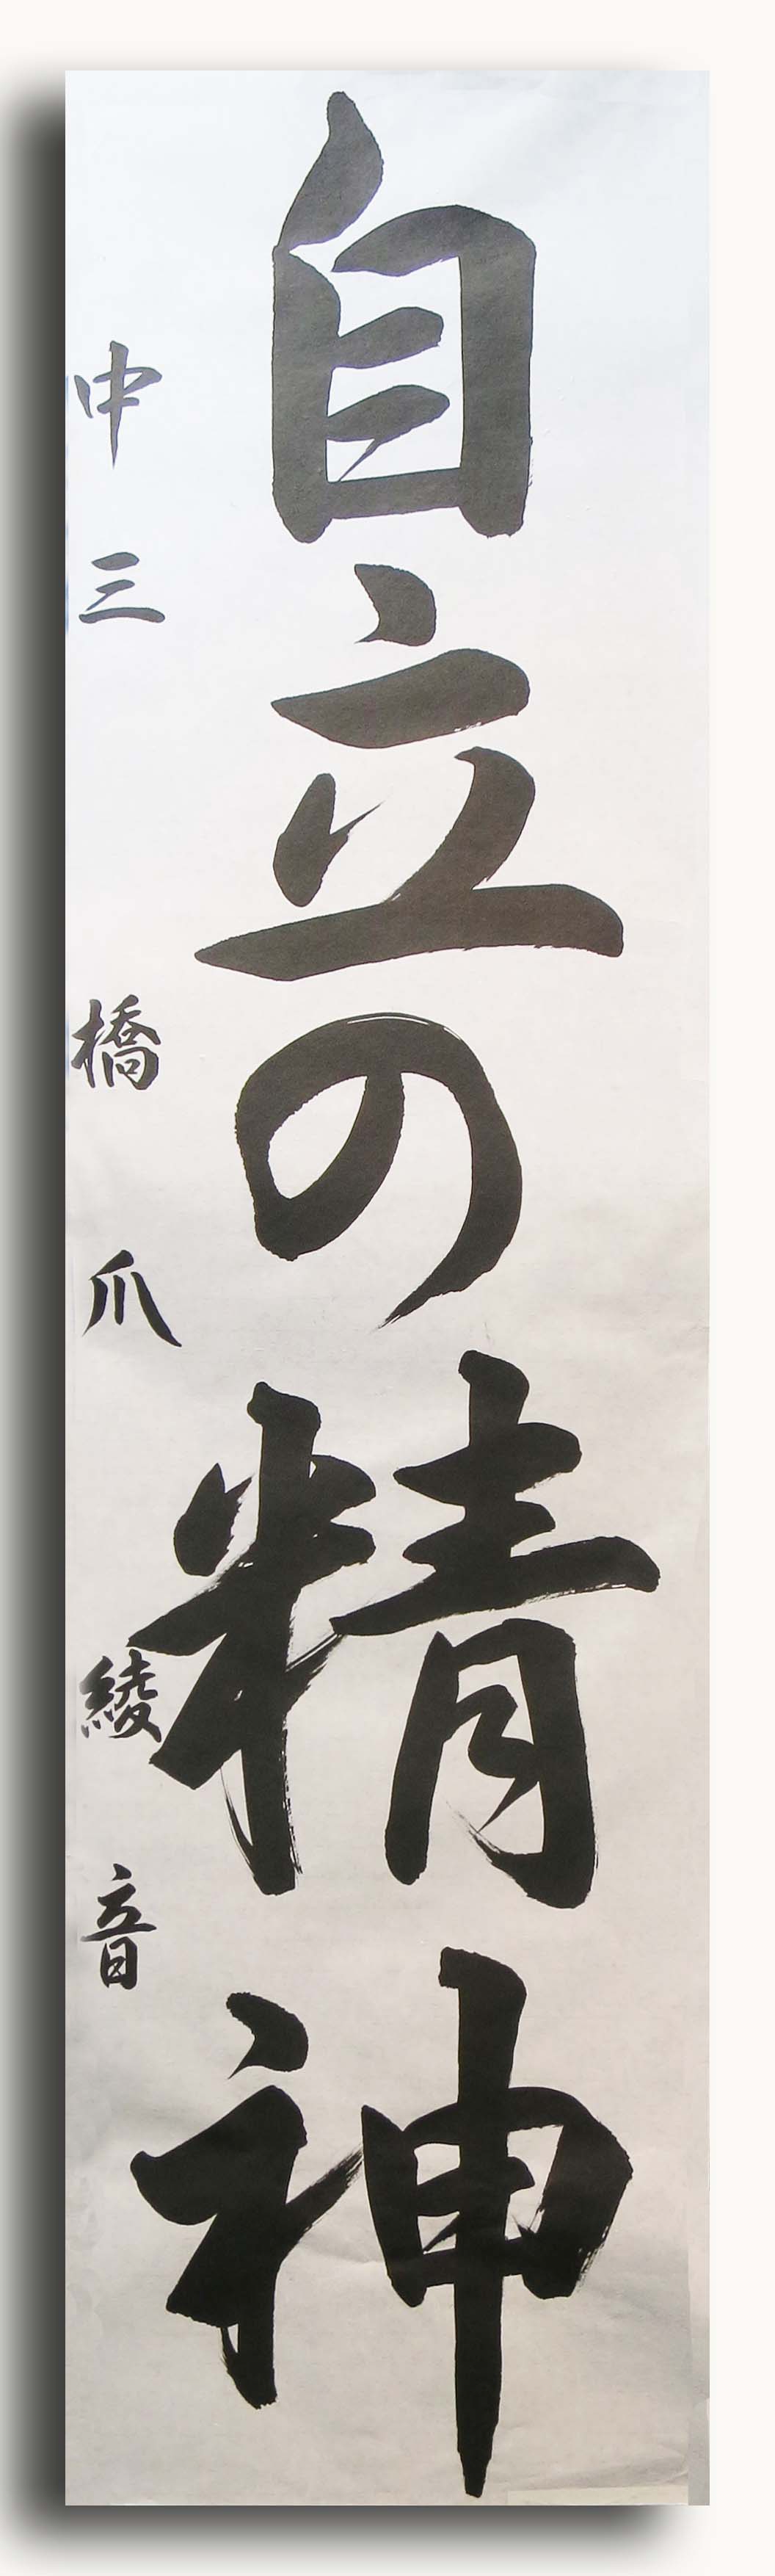 自立の精神
中三 橋爪 綾音